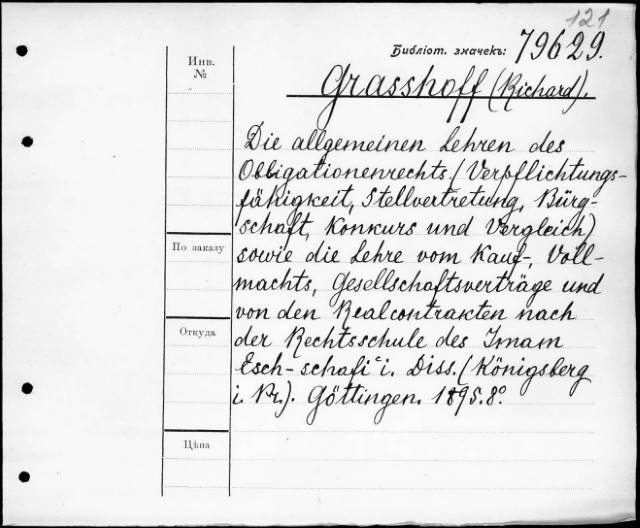 121
Библіот. значекъ: 79629.
Инв.
№
Grasshoff (Richard).
Die allgemeinen Lehren des
Obbigationenrechts (Verpflichtungs-
fähigkeit, Stellvertretung, Bürg-
schaft, Konkurs und Vergleich)
По заказу
sowie die Lehre vom Kauf-, Voll-
machts, Gesellschaftsverträge und
von den Realcontrakten nach
Откуда
der Rechtsschule des Imam
Esch-schafi'i. Diss. (Königsberg
i. Pr.). Göttingen. 1895. 8°.
Цѣна